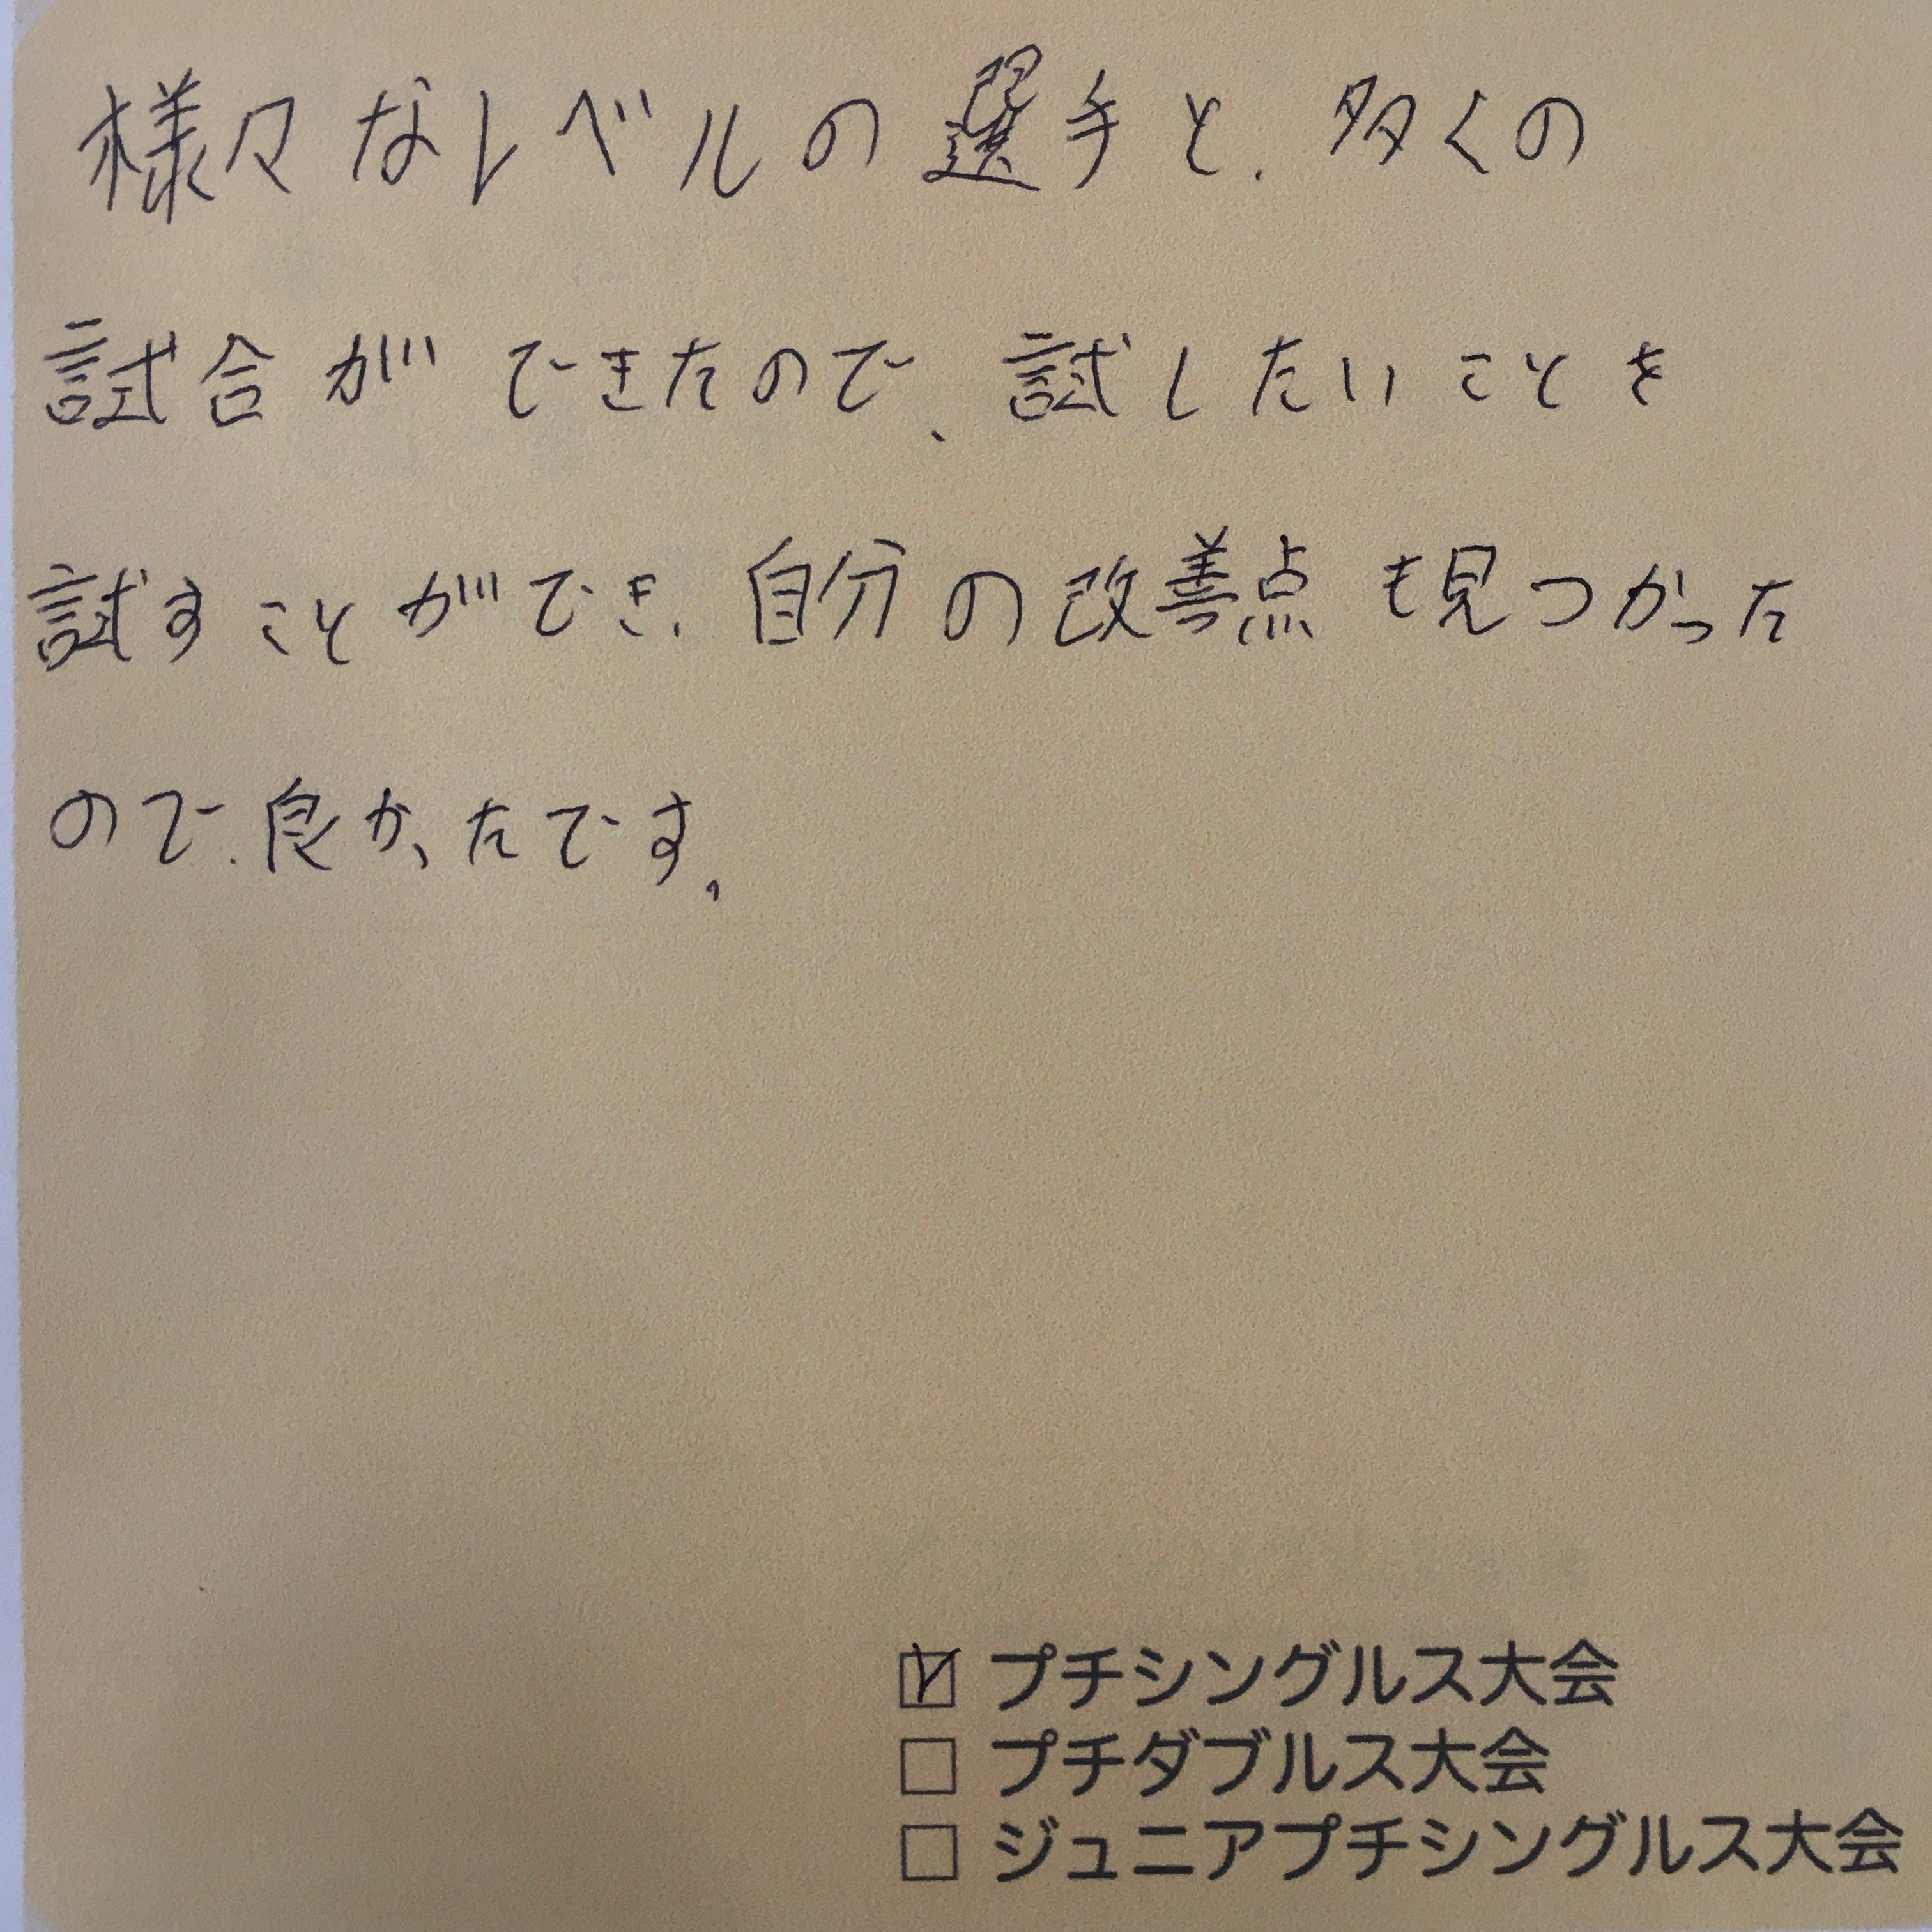 様々なレベルの選手と、多くの
試合ができたので、試したいことを
試すことができ、自分の改善点も見つかった
ので、良かったです。
☑ プチシングルス大会
□ プチダブルス大会
□ ジュニアプチシングルス大会